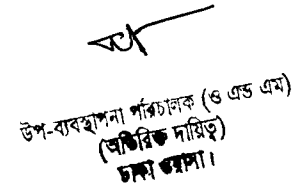 উপ-ব্যবস্থাপনা পরিচালক (ও এন্ড এম)
(অতিরিক্ত দায়িত্ব)
ঢাকা ওয়াসা।